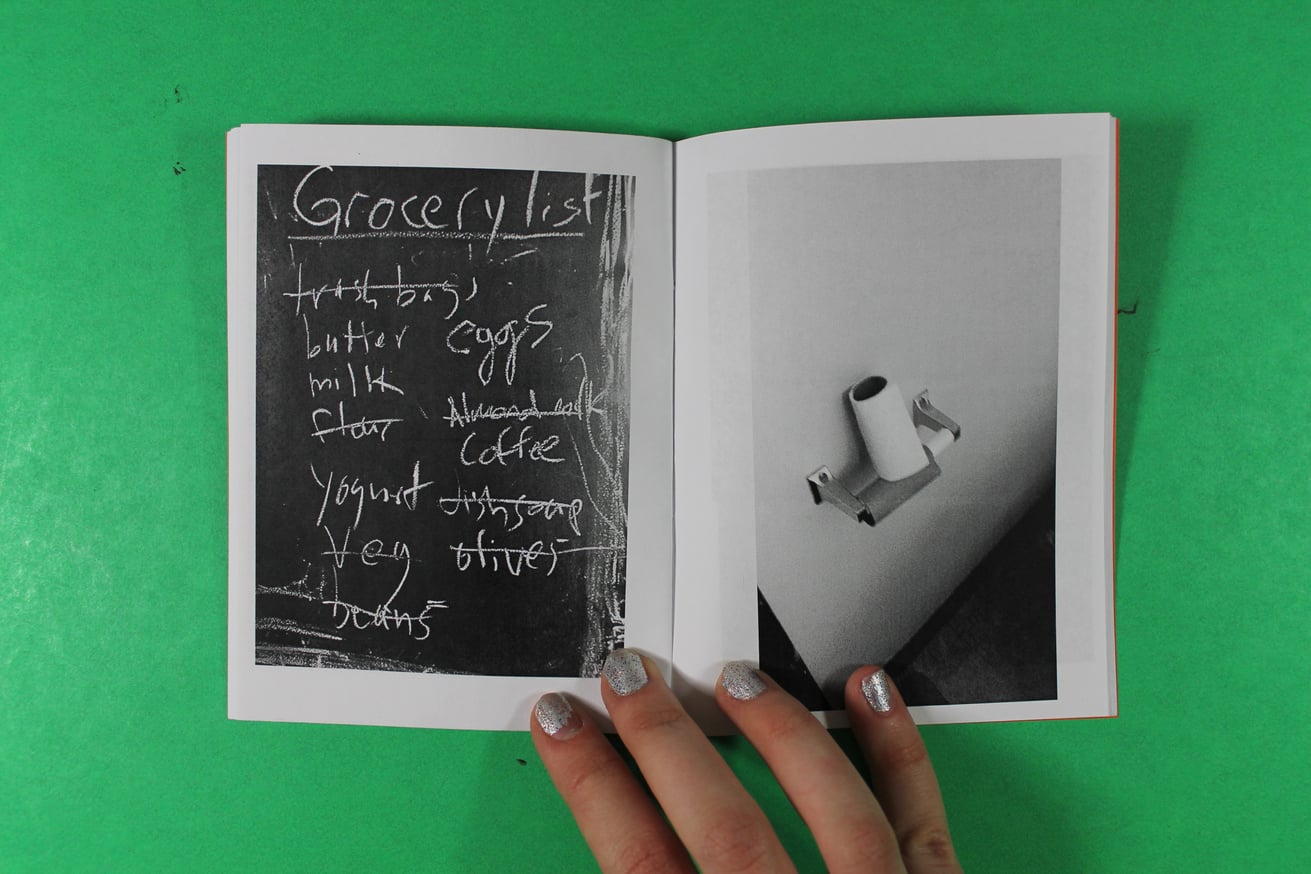 Grocery list
trash bags
butter eggs
milk
flour Almond milk
Coffee
Yogurt dish soap
Veg olives
beans